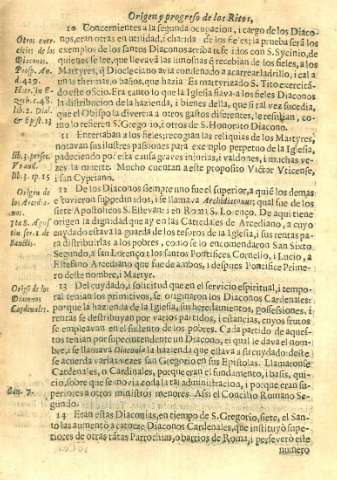 Origen y progreso de los Ritos,
10 Concernientes a la segunda ocupacion, i cargo de los Diaco-
nos, eran otras en utilidad, i charidad de los fieles; la prueba será los
exemplos de los santos Diaconos arriba referidos con S. Sycinio, de
quienes se lee, que llevavá las limosnas q̃ recebian de los fieles, a los
Martyres, q̃ Diocleciano avia condenado a acarrear ladrillo, i cal a
un thermas, o baños, que hazia. Es martyrizado S. Tito exercitá-
do este oficio. Era tanto lo que la Iglesia fiava a los fieles Diaconos
la distribucion de la hazienda, i bienes della, que si tal vez sucedia,
que el Obispo la divertia a otros gastos diferentes, le resistian, co-
mo lo refieren S. Gregorio, i otros de S. Honorato Diacono.
11 Enterraban a los fieles; recogian las reliquias de los Martyres,
notavan sus ilustres passiones para exemplo perpetuo de la Iglesia,
padeciendo por esta causa graves injurias, i valdones, i muchas ve-
zes la muerte. Mucho cuentan a este proposito Victor Vticense,
i san Cypriano.
12 De los Diaconos siempre uno fue el superior, a quié los demas
estuvieron subordinados, i se llamava Archidiaconus; qual fue de los
siete Apostolicos S. Estevan: i en Roma S. Lorenço. De aqui tiene
origen la dignidad que ay en las Catedrales de Arcediano, a cuyo
cuydado estava la guarda de los tesoros de la Iglesia, i sus rentas pa-
ra distribuirlas a los pobres, como se lo encomendaron San Sixto
Segundo, a san Lorenço; los santos Pontifices Cornelio, i Lucio, a
Estefano Arcediano que fue de ambos, i despues Pontifice Prime-
ro deste nombre, i Martyr.
13 Del cuydado, i solicitud que en el servicio espiritual, i tempo-
ral tenian los primitivos, se originaron los Diaconos Cardenales:
porque la hazienda de la Iglesia, sus heredamientos, possessiones, i
rentas se destribuian por varios partidos, i estancias, cuyos frutos
se empleavan en el sustento de los pobres. Cada partido de aques-
tos tenian por superintendente un Diacono, el qual le dava el nom-
bre; se llamava Diaconia la hazienda que estava a su cuydado: deste
se acuerda varias vezes san Gregorio en sus Epistolas. Llamaronse
Cardenales, o Cardinales, porque eran el fundamento, i basis, qui-
cio, sobre que se movia toda la tal administracion, i porque eran su-
periores a otros ministros menores. Asi el Concilio Romano Se-
gundo.
14 Eran estas Diaconias, en tiempo de S. Gregorio, siete, el San-
to las aumentó a catorze Diaconos Cardenales, que instituyò supe-
riores de otras tātas Parrochias, o barrios de Roma, i perseverò este
numero
Otros exer-
cicios de los
Diaconos.
Origen de
los Arcedia-
nos.
Origẽ de los
Diaconos
Cardenales.
Can. 7.